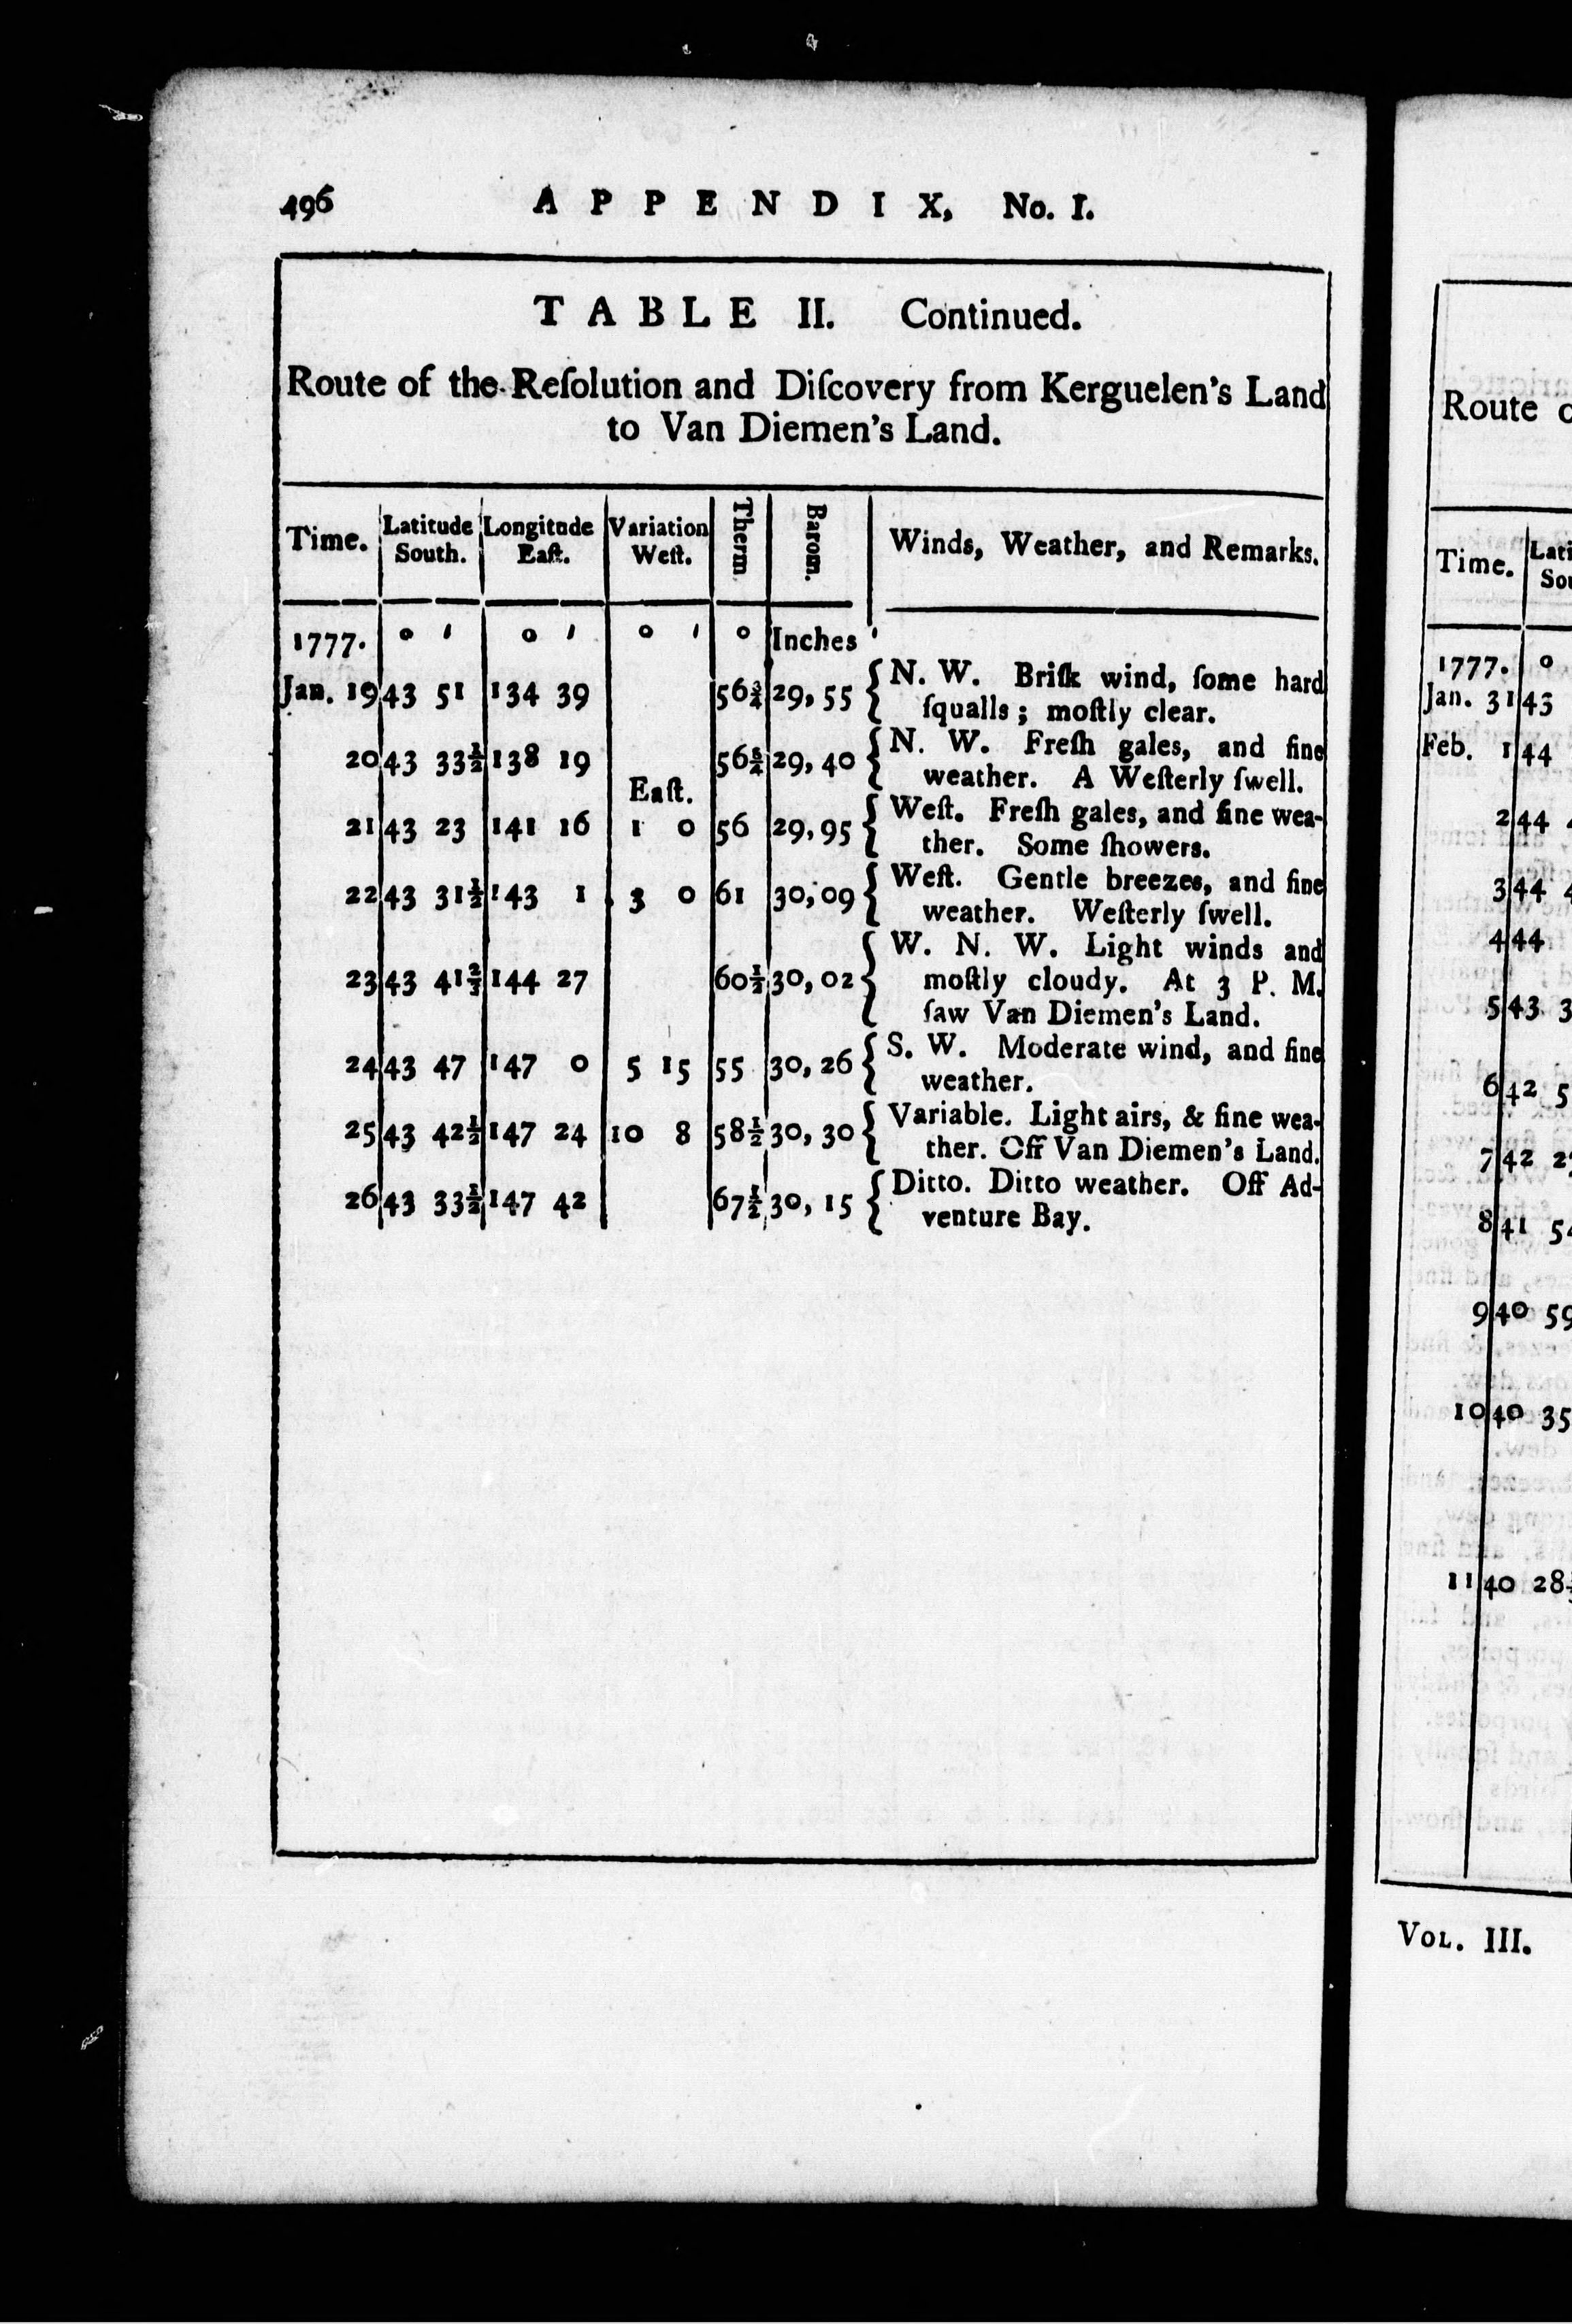 496 A P P E N D I X, No. I.
T A B L E II. Continued.
Route of the Reſolution and Diſcovery from Kerguelen's Land
to Van Diemen's Land.
Time. Latitude South. Longitude Eaſt. Variation Weſt. Therm. Barom. Winds, Weather, and Remarks.
1777. o ′ o ′ o ′ o Inches
Jan. 19 43 51 134 39 56¾ 29, 55 { N. W. Briſk wind, ſome hard
ſqualls; moſtly clear.
20 43 33½ 138 19 29, 40 { N. W. Freſh gales, and fine
weather. A Weſterly ſwell.
Eaſt.
21 43 23 141 16 1 0 56 29, 95 { Weſt. Freſh gales, and fine wea-
ther. Some ſhowers.
22 43 31½ 143 1 3 0 61 30, 09 { Weſt. Gentle breezes, and fine
weather. Weſterly ſwell.
23 43 41⅔ 144 27 60½ 30, 02 { W. N. W. Light winds and
moſtly cloudy. At 3 P. M.
ſaw Van Diemen's Land.
24 43 47 147 0 5 15 55 30, 26 { S. W. Moderate wind, and fine
weather.
25 43 42½ 147 24 10 8 58½ 30, 30 { Variable. Light airs, & fine wea-
ther. Off Van Diemen's Land.
26 43 33½ 147 42 67½ 30, 15 { Ditto. Ditto weather. Off Ad-
venture Bay.
Route
Time.
1777. o
Jan. 31 43
Feb. 1 44
2 44
3 44
4 44
5 43
6 42
7 42
8 41
9 40 59
10 40 35
11 40 28
VOL. III.